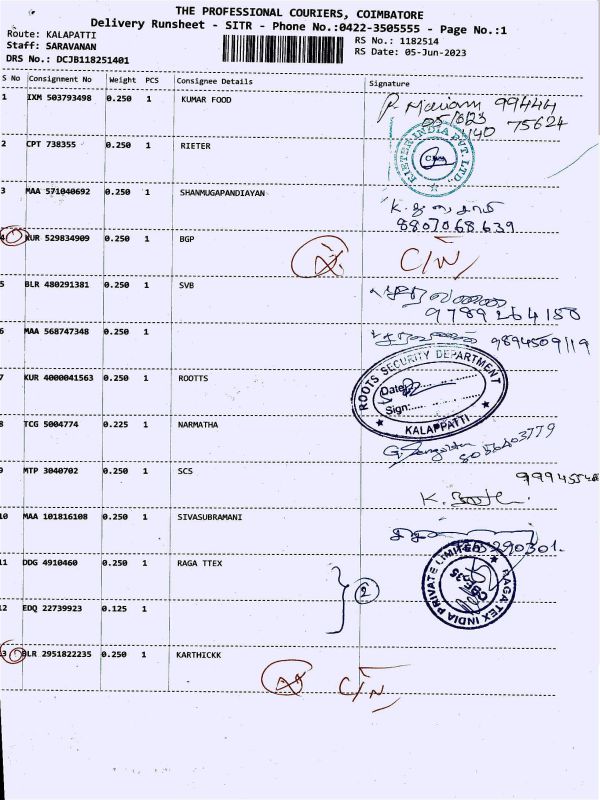 THE PROFESSIONAL COURIERS, COIMBATORE
Delivery Runsheet - SITR - Phone No.:0422-3505555 - Page No.:1
Route: KALAPATTI
Staff: SARAVANAN
DRS No.: DCJB118251401
RS No.: 1182514
RS Date: 05-Jun-2023
S No Consignment No Weight PCS Consignee Details Signature
1 IXM 503793498 0.250 1 KUMAR FOOD
99444
05/6/23
75624
2 CPT 738355 0.250 1 RIETER
RIETER INDIA PVT. LTD
3 MAA 571040692 0.250 1 SHANMUGAPANDIAYAN
8807068639
4 KUR 529834909 0.250 1 BGP C/N
5 BLR 480291381 0.250 1 SVB
9789264150
6 MAA 568747348 0.250 1
9894509119
7 KUR 4000041563 0.250 1 ROOTTS
ROOTS SECURITY DEPARTMENT
Date:
Sign:
KALAPPATTI
8 TCG 5004774 0.225 1 NARMATHA
8056403779
9 MTP 3040702 0.250 1 SCS
10 MAA 101816108 0.250 1 SIVASUBRAMANI
11 DDG 4910460 0.250 1 RAGA TTEX
RAGA TEX INDIA PRIVATE LIMITED
CBE-35
2
12 EDQ 22739923 0.125 1
13 BLR 2951822235 0.250 1 KARTHICKK
C/N